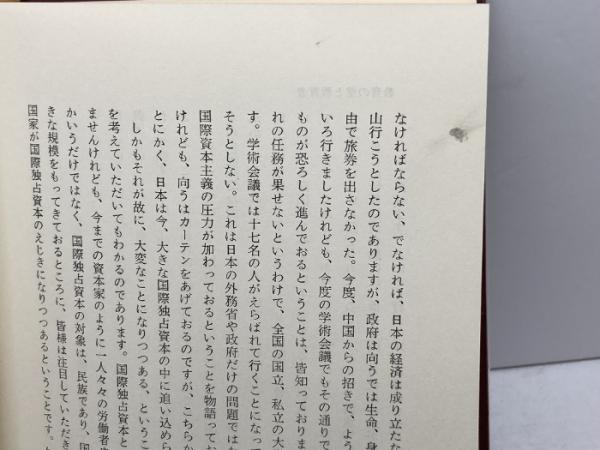 なければならない、でなければ、日本の経済は成り立たな
山行こうとしたのでありますが、政府は向うでは生命、身
由で旅券を出さなかった。今度、中国からの招きで、よう
いろ行きましたけれども、今度の学術会議でもその通りで
ものが恐ろしく進んでおるということは、皆知っておりま
れの任務が果せないというわけで、全国の国立、私立の大
す。学術会議では十七名の人がえらばれて行くことになって
そうとしない。これは日本の外務省や政府だけの問題ではな
国際資本主義の圧力が加わっておるということを物語ってお
けれども、向うはカーテンをあげておるのですが、こちらか
とにかく、日本は今、大きな国際独占資本の中に追い込めら
しかもそれが故に、大変なことになりつつある、というこ
を考えていただいてもわかるのであります。国際独占資本と
ませんけれども、今までの資本家のように一人々々の労働者
かいうだけではなく、国際独占資本の対象は、民族であり、国
きな規模をもってきておるところに、皆様は注目していただき
国家が国際独占資本のえじきになりつつあるということです。